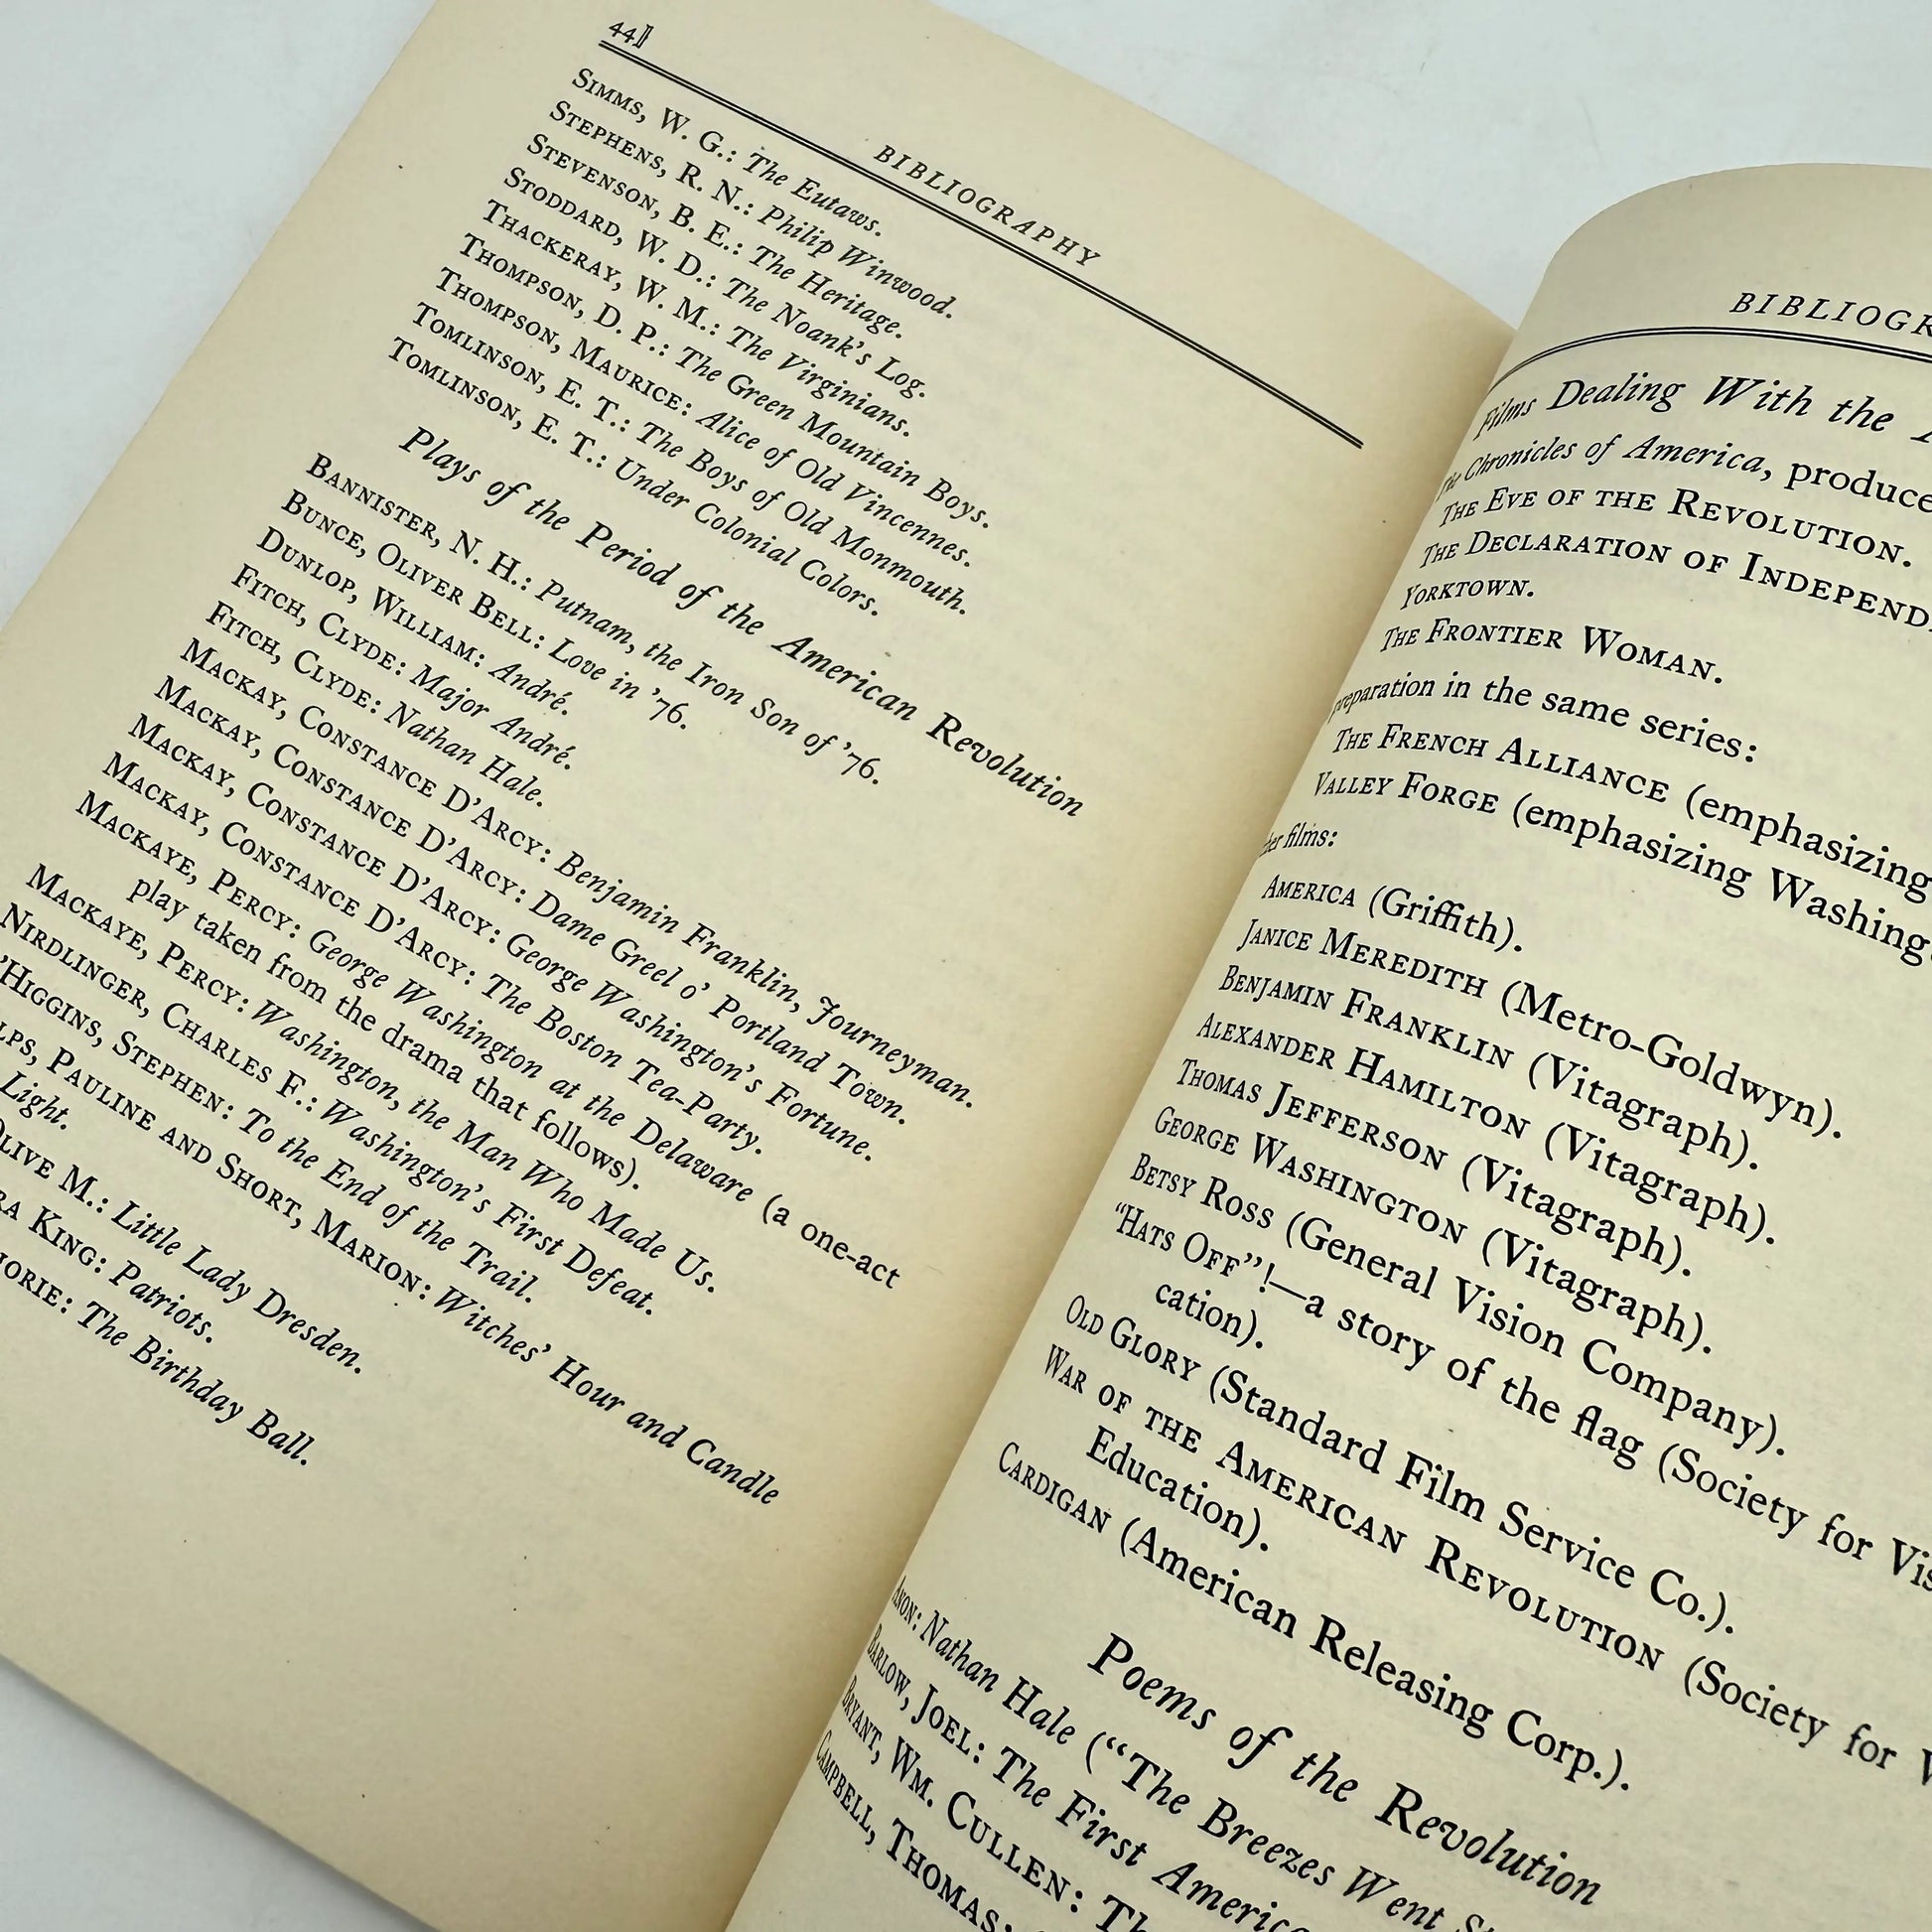 44]
BIBLIOGRAPHY
SIMMS, W. G.: The Eutaws.
STEPHENS, R. N.: Philip Winwood.
STEVENSON, B. E.: The Heritage.
STODDARD, W. D.: The Noank's Log.
THACKERAY, W. M.: The Virginians.
THOMPSON, D. P.: The Green Mountain Boys.
THOMPSON, MAURICE: Alice of Old Vincennes.
TOMLINSON, E. T.: The Boys of Old Monmouth.
TOMLINSON, E. T.: Under Colonial Colors.
Plays of the Period of the American Revolution
BANNISTER, N. H.: Putnam, the Iron Son of '76.
BUNCE, OLIVER BELL: Love in '76.
DUNLOP, WILLIAM: André.
FITCH, CLYDE: Major André.
FITCH, CLYDE: Nathan Hale.
MACKAY, CONSTANCE D'ARCY: Benjamin Franklin, Journeyman.
MACKAY, CONSTANCE D'ARCY: Dame Greel o' Portland Town.
MACKAY, CONSTANCE D'ARCY: George Washington's Fortune.
MACKAY, CONSTANCE D'ARCY: The Boston Tea-Party.
MACKAYE, PERCY: George Washington at the Delaware (a one-act
play taken from the drama that follows).
MACKAYE, PERCY: Washington, the Man Who Made Us.
NIRDLINGER, CHARLES F.: Washington's First Defeat.
'HIGGINS, STEPHEN: To the End of the Trail.
LPS, PAULINE AND SHORT, MARION: Witches' Hour and Candle
Light.
OLIVE M.: Little Lady Dresden.
RA KING: Patriots.
JORIE: The Birthday Ball.
BIBLIOGR
Films Dealing With the
Chronicles of America, produce
THE EVE OF THE REVOLUTION.
THE DECLARATION OF INDEPEND
YORKTOWN.
THE FRONTIER WOMAN.
preparation in the same series:
THE FRENCH ALLIANCE (emphasizing
VALLEY FORGE (emphasizing Washing
films:
AMERICA (Griffith).
JANICE MEREDITH (Metro-Goldwyn).
BENJAMIN FRANKLIN (Vitagraph).
ALEXANDER HAMILTON (Vitagraph).
THOMAS JEFFERSON (Vitagraph).
GEORGE WASHINGTON (Vitagraph).
BETSY ROSS (General Vision Company).
"HATS OFF"!—a story of the flag (Society for Vis
cation).
OLD GLORY (Standard Film Service Co.).
WAR OF THE AMERICAN REVOLUTION (Society for V
Education).
CARDIGAN (American Releasing Corp.).
Poems of the Revolution
ANON: Nathan Hale ("The Breezes Went
BARLOW, JOEL: The First America
BRYANT, WM. CULLEN: Th
CAMPBELL, THOMAS: